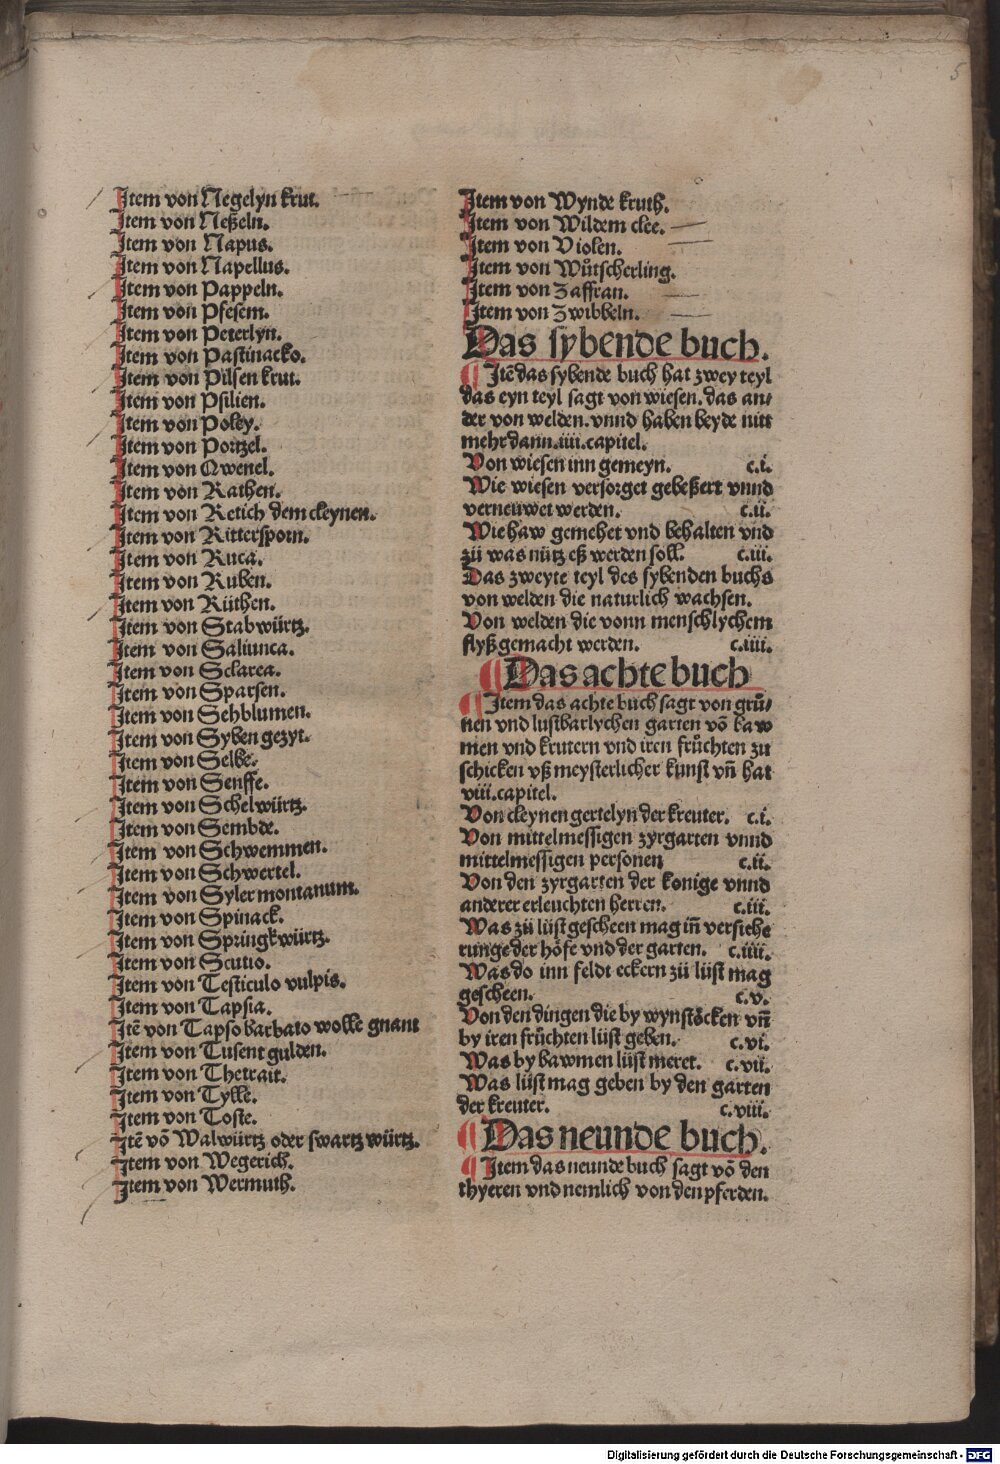 5
Item von Negelyn krut.
Item von Neßeln.
Item von Napus.
Item von Napellus.
Item von Pappeln.
Item von Pfesem.
Item von Peterlyn.
Item von Pastinacko.
Item von Pilsen krut.
Item von Psilien.
Item von Poley.
Item von Portzel.
Item von Qwenel.
Item von Rathen.
Item von Retich dem cleynen.
Item von Rittersporn.
Item von Ruca.
Item von Ruben.
Item von Rüthen.
Item von Stabwürtz.
Item von Saliunca.
Item von Sclarea.
Item von Sparsen.
Item von Sehblumen.
Item von Syben gezyt.
Item von Selbe.
Item von Senffe.
Item von Schelwürtz.
Item von Sembde.
Item von Schwemmen.
Item von Schwertel.
Item von Syler montanum.
Item von Spinack.
Item von Springkwürtz.
Item von Scutio.
Item von Testiculo vulpis.
Item von Tapsia.
Itē von Tapso barbato wolle gnant
Item von Tusent gulden.
Item von Thetrait.
Item von Tylle.
Item von Toste.
Itē vō Walwürtz oder swartz würtz.
Item von Wegerich.
Item von Wermuth.
Item von Wynde kruth.
Item von Wildem clee.
Item von Violen.
Item von Wütscherling.
Item von Zaffran.
Item von Zwibbeln.
Das sybende buch.
Itē das sybende buch hat zwey teyl
das eyn teyl sagt von wiesen. das an⸗
der von welden. vnnd haben beyde nitt
mehr dann .iiii. capitel.
Von wiesen inn gemeyn. c.i.
Wie wiesen versorget gebeßert vnnd
verneüwet werden. c.ii.
Wie haw gemehet vnd behalten vnd
zü was nütz eß werden soll. c.iii.
Das zweyte teyl des sybenden buchs
von welden die naturlich wachsen.
Von welden die vonn menschlychem
flyß gemacht werden. c.iiii.
Das achte buch
Item das achte buch sagt von grü⸗
nen vnd lustbarlychen garten vō baw
men vnd krutern vnd iren früchten zu
schicken vß meysterlicher kunst vn̄ hat
viii. capitel.
Von cleynen gertelyn der kreuter. c.i.
Von mittelmessigen zyrgarten vnnd
mittelmessigen personen c.ii.
Von den zyrgarten der konige vnnd
anderer erleuchten herren. c.iii.
Was zü lüst gescheen mag in̄ versiche
runge der höfe vnd der garten. c.iiii.
Was do inn feldt eckern zü lüst mag
gescheen. c.v.
Von den dingen die by wynstöcken vn̄
by iren früchten lüst geben. c.vi.
Was by bawmen lüst meret. c.vii.
Was lüst mag geben by den garten
der kreuter. c.viii.
Das neunde buch.
Item das neunde buch sagt vō den
thyeren vnd nemlich von den pferden.
Digitalisierung gefördert durch die Deutsche Forschungsgemeinschaft - DFG